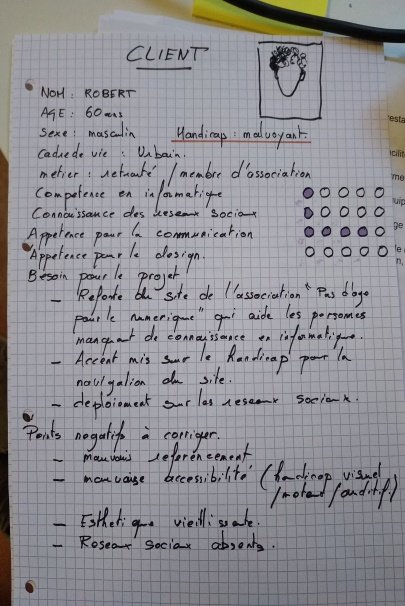 CLIENT
NOM : ROBERT
AGE : 60 ans
Sexe : masculin Handicap : malvoyant
Cadre de vie : Urbain.
metier : retraité / membre d'association
Competence en informatique
Connaissance des reseaux sociaux
Appetence pour la communication
Appetence pour le design.
Besoin pour le projet
– Refonte du site de l'association "Pas d'age
pour le numerique" qui aide les personnes
manquant de connaissance en informatique.
– Accent mis sur le handicap pour la
navigation du site.
– deploiement sur les reseaux sociaux.
Points negatifs à corriger.
– mauvais referencement
– mauvaise accessibilité (handicap visuel
/moteur /auditif.)
– Esthetique vieillissante.
– Reseaux sociaux absents.